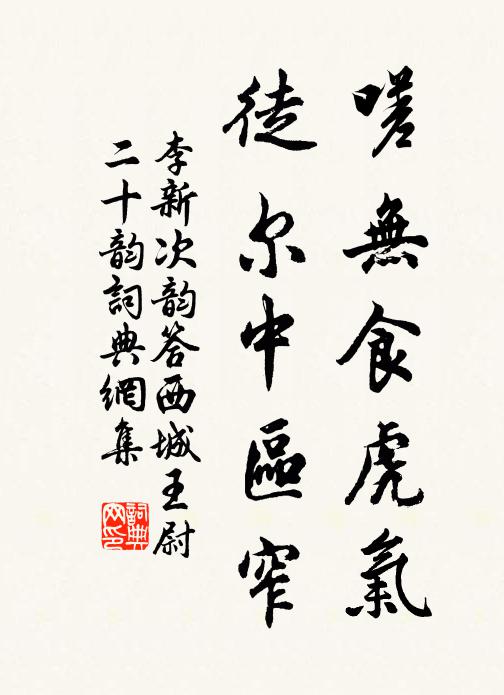 嗟無食虎氣
徒尔中區窄
李新次韵答西城王尉
二十韵詞典網集
詞典
网印